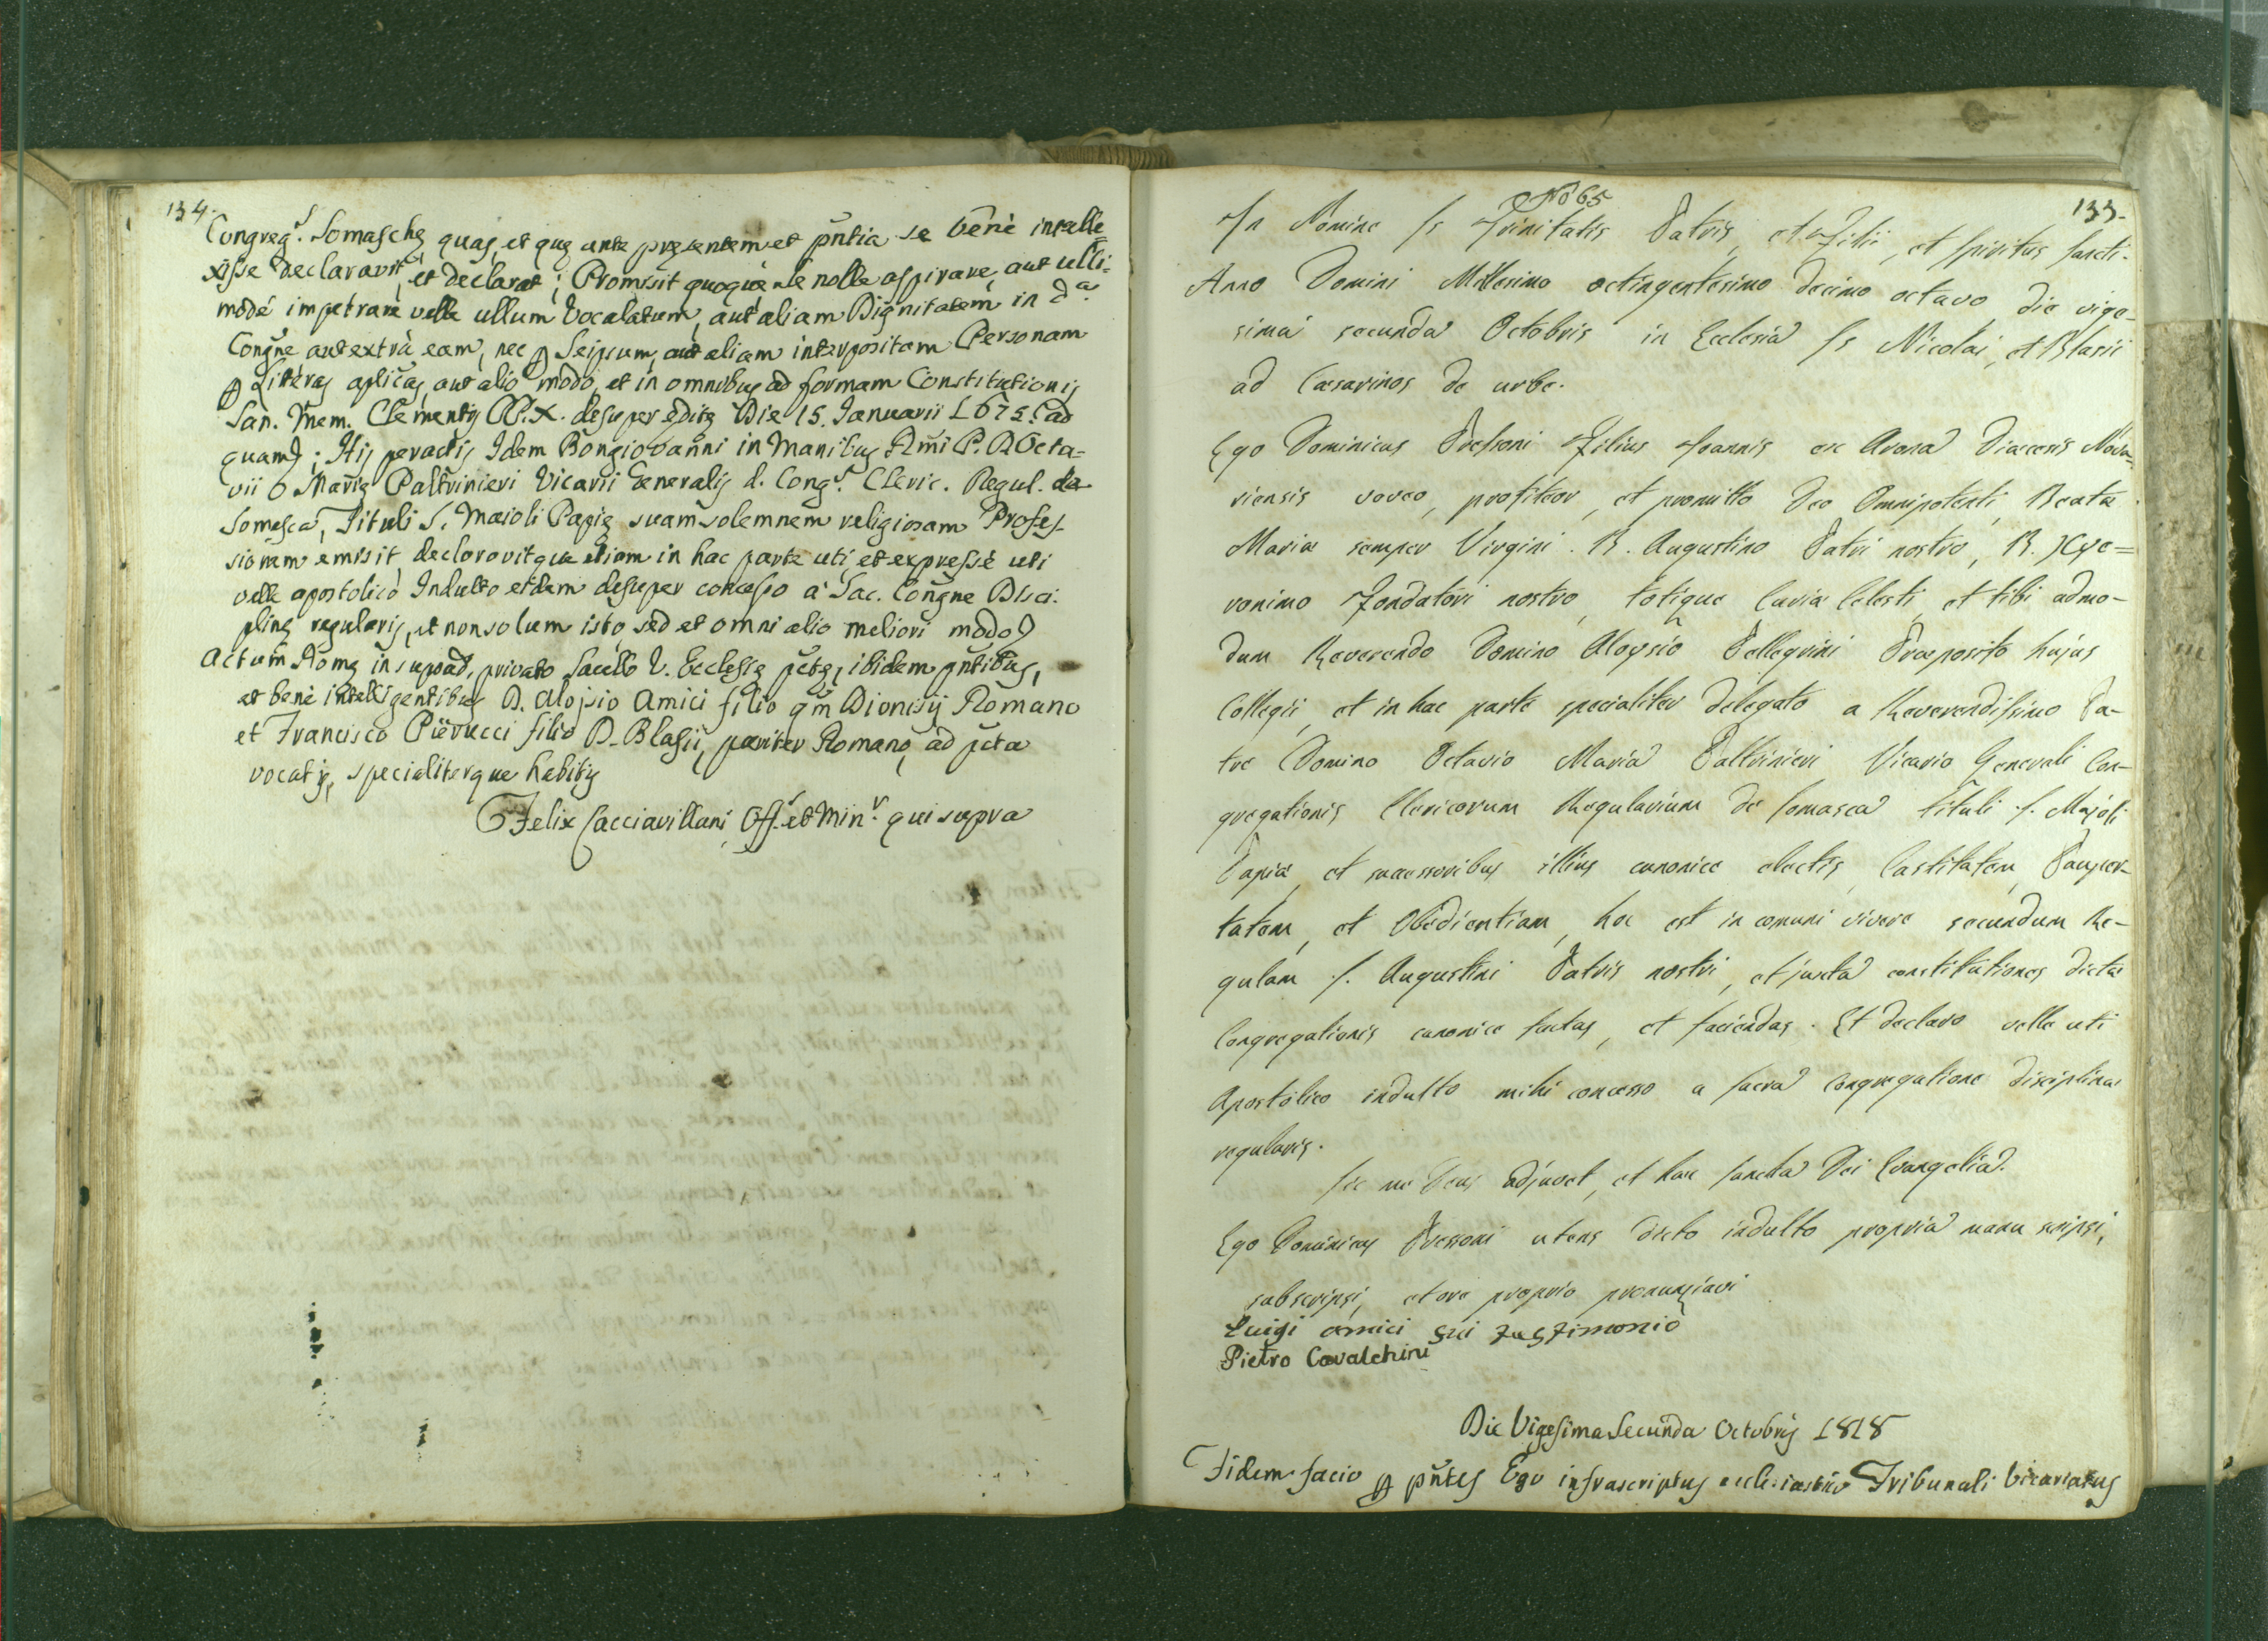 134.
Congreg.s Somaschę quas, et quę ante pręsentem et pñtia se benè intelle
xisse declaravit, et declarat; Promisit quoquè se nolle aspirare, aut ulli=
modé impetrare velle ullum Vocalatum, aut aliam Dignitatem in d.a
Congñe aut extrà eam, nec p Seipsum, aut aliam interpositam Personam
p Literas aplicas, aut alio modo, et in omnibus ad formam Constitutionis
San. Mem. Clementis PP. X. desuper editę Die 15. Januarii 1675. (ad
quam); His peractis Idem Bongiovanni in Manibus Rm̃i P. D Octa=
vii Marię Paltrinieri Vicarii Generalis d. Cong.s Cleric. Regul. de
Somasca, Tituli S. Maioli Papię suam solemnem religiosam Profes-
sionem emisit, declaravitque etiam in hac parte uti, et expressè uti
velle apostolicò Indulto eidem desuper concesso a' Sac. Congñe Disci-
plinę regularis, et non solum isto, sed et omni alio meliori modo)
Actum Romę in supad. privato Sacello V. Ecclesię pctę, ibidem pñtibus,
et benè intelligentibus D. Alojsio Amici filio qm̃ Dionisij Romano
et Francisco Piërucci filio D. Blasii, pariter Romano, ad pcta
vocatis, specialiterque habitis
Felix Cacciavillani Off.s et Min.r qui supra
No 65
133.
In Nomine Ss Trinitatis Patris, et Filii, et Spiritus Sancti.
Anno Domini Millesimo octingentesimo decimo octavo die vige-
sima secunda Octobris in Ecclesia Ss Nicolai, et Blasii
ad Cæsarinos de urbe.
Ego Dominicus Pressoni Filius Joannis ex Arona Diæcesis Nova-
riensis voveo, profiteor, et promitto Deo Omnipotenti, Beatæ
Mariæ semper Virgini. B. Augustino Patri nostro, B. Hye=
ronimo Fondatori nostro, totique Curiæ Celesti, et tibi admo-
dum Reverendo Domino Aloysio Pellegrini Præposito hujus
Collegii, et in hac parte specialiter delegato a Reverendissimo Pa-
tre Domino Octavio Maria Paltrinieri Vicario Generali Con-
gregationis Clericorum Regularium de Somasca tituli S. Majoli
Papiæ, et successoribus illius canonice electis, Castitatem, Pauper-
tatem, et Obedientiam, hoc est in comuni vivere secundum Re-
gulam S. Augustini Patris nostri, et juxta constitutiones dictæ
Congregationis canonice factas, et faciendas. Et declaro velle uti
Apostolico indulto mihi concesso a Sacra Congregatione disciplinæ
regularis.
Sic me Deus adjuvet, et hæc Sancta Dei Evangelia.
Ego Dominicus Pressoni utens dicto indulto propria manu scripsi,
subscripsi, et ore proprio pronunziavi
Luigi amici fui testimonio
Pietro Cavalchini
Die Vigesima Secunda Octobris 1818
Fidem facio p pñtes Ego infrascriptus ecclesiastico Tribunali Vicariatus